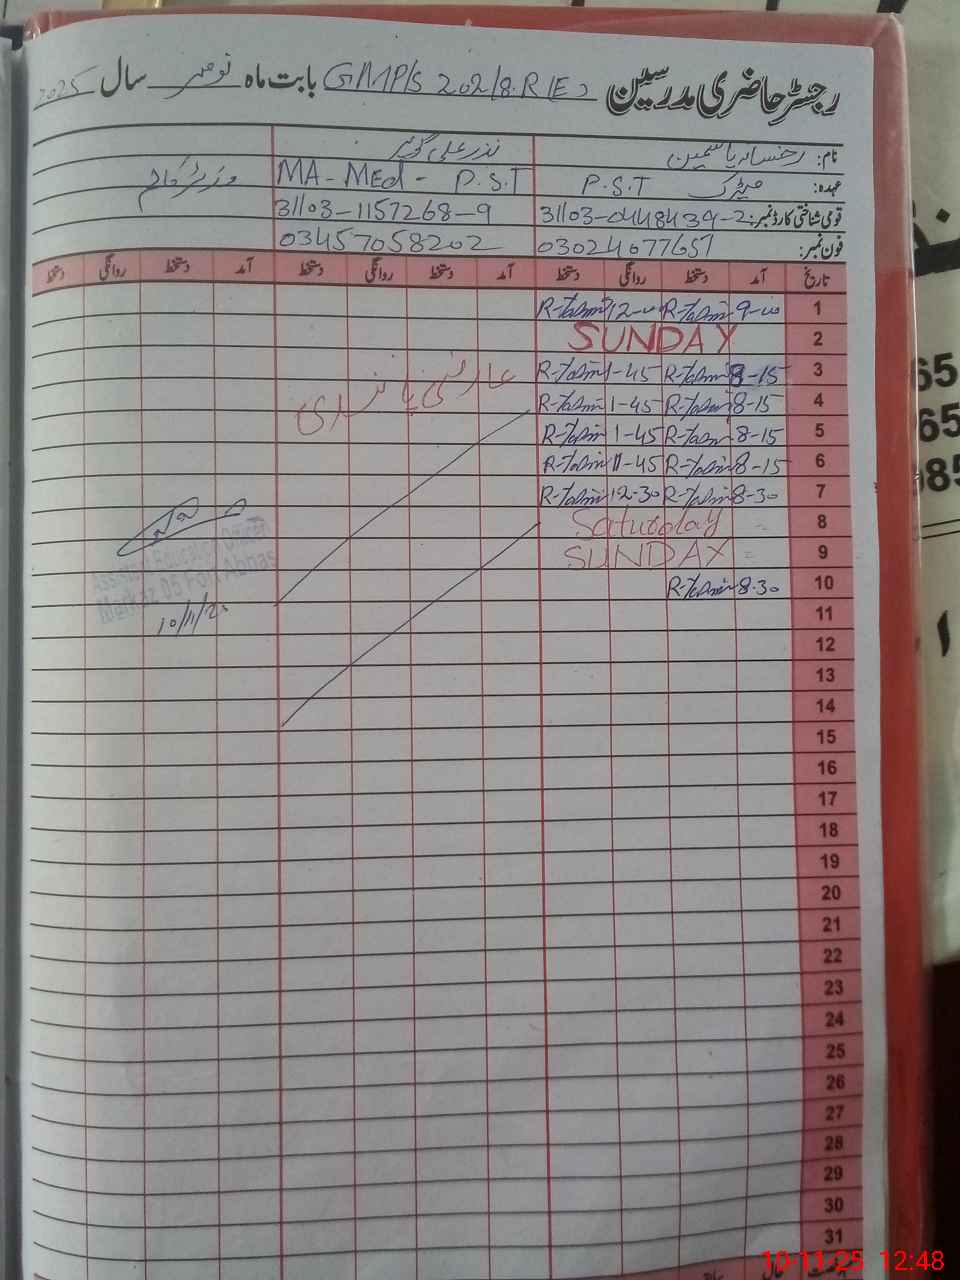 رجسٹر حاضری مدرسین GMP/S 202/8.R(E) بابت ماہ نومبر سال 2025
نام: رخسانہ یاسمین نذر علی گوہر
عہدہ: میٹرک P.S.T MA-MEd- P.S.T
قومی شناختی کارڈ نمبر: 31103-0448439-2 31103-1157268-9
فون نمبر: 03024077651 03457058202
تاریخ آمد دستخط روانگی دستخط آمد دستخط روانگی دستخط آمد دستخط روانگی دستخط
1 9-00 12-00
2 SUNDAY
3 8-15 1-45
4 8-15 1-45
عارضی
5 8-15 1-45
6 8-15 1-45
7 8-30 12-30
8 Saturday
9 SUNDAY
Assistant Education Officer
Markaz 05 Fort Abbas
10 8-30
10/11/25
11
12
13
14
15
16
17
18
19
20
21
22
23
24
25
26
27
28
29
30
31
10-11-25 12:48
65
65
085